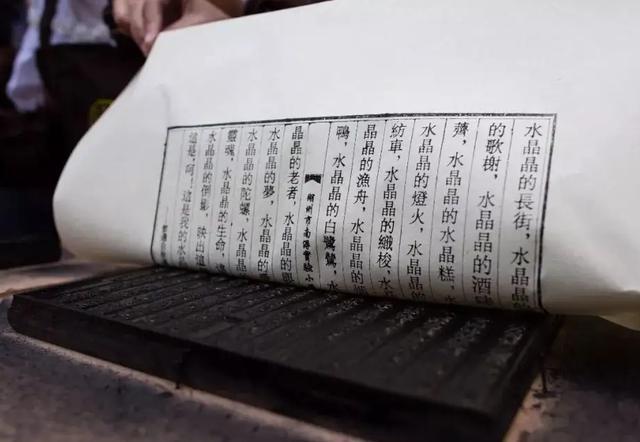 水晶晶的長街，水晶晶
的歌榭，水晶晶的酒
薺，水晶晶的水晶糕，水
水晶晶的燈火，水晶晶的
紡車，水晶晶的織梭，水
晶晶的漁舟，水晶晶的
鴨，水晶晶的白鷺鷥，水
湖州市南潯實驗小
晶晶的老者，水晶晶的
水晶晶的夢，水晶晶的
水晶晶的陀螺，水晶晶
靈魂，水晶晶的生命，
水晶晶的倒影，映出這
這是，呵！這是我的水